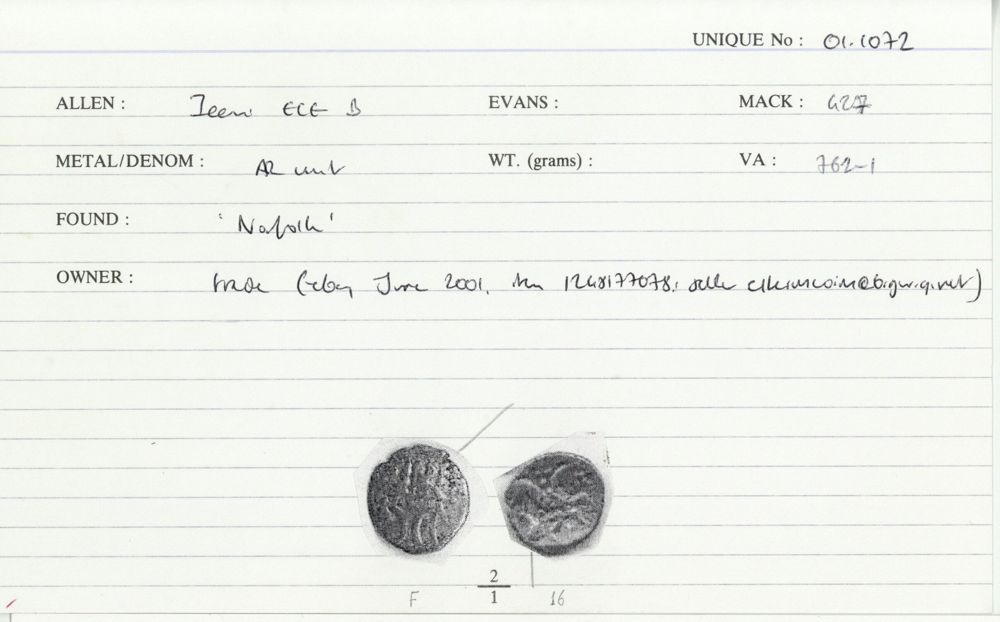 UNIQUE No : 01.1072
ALLEN : Iceni ECE B EVANS : MACK : 427
METAL/DENOM : AR unit WT. (grams) : VA : 762-1
FOUND : 'Norfolk'
OWNER : trade (eBay June 2001, item 1248177078; seller
2
F 1 16